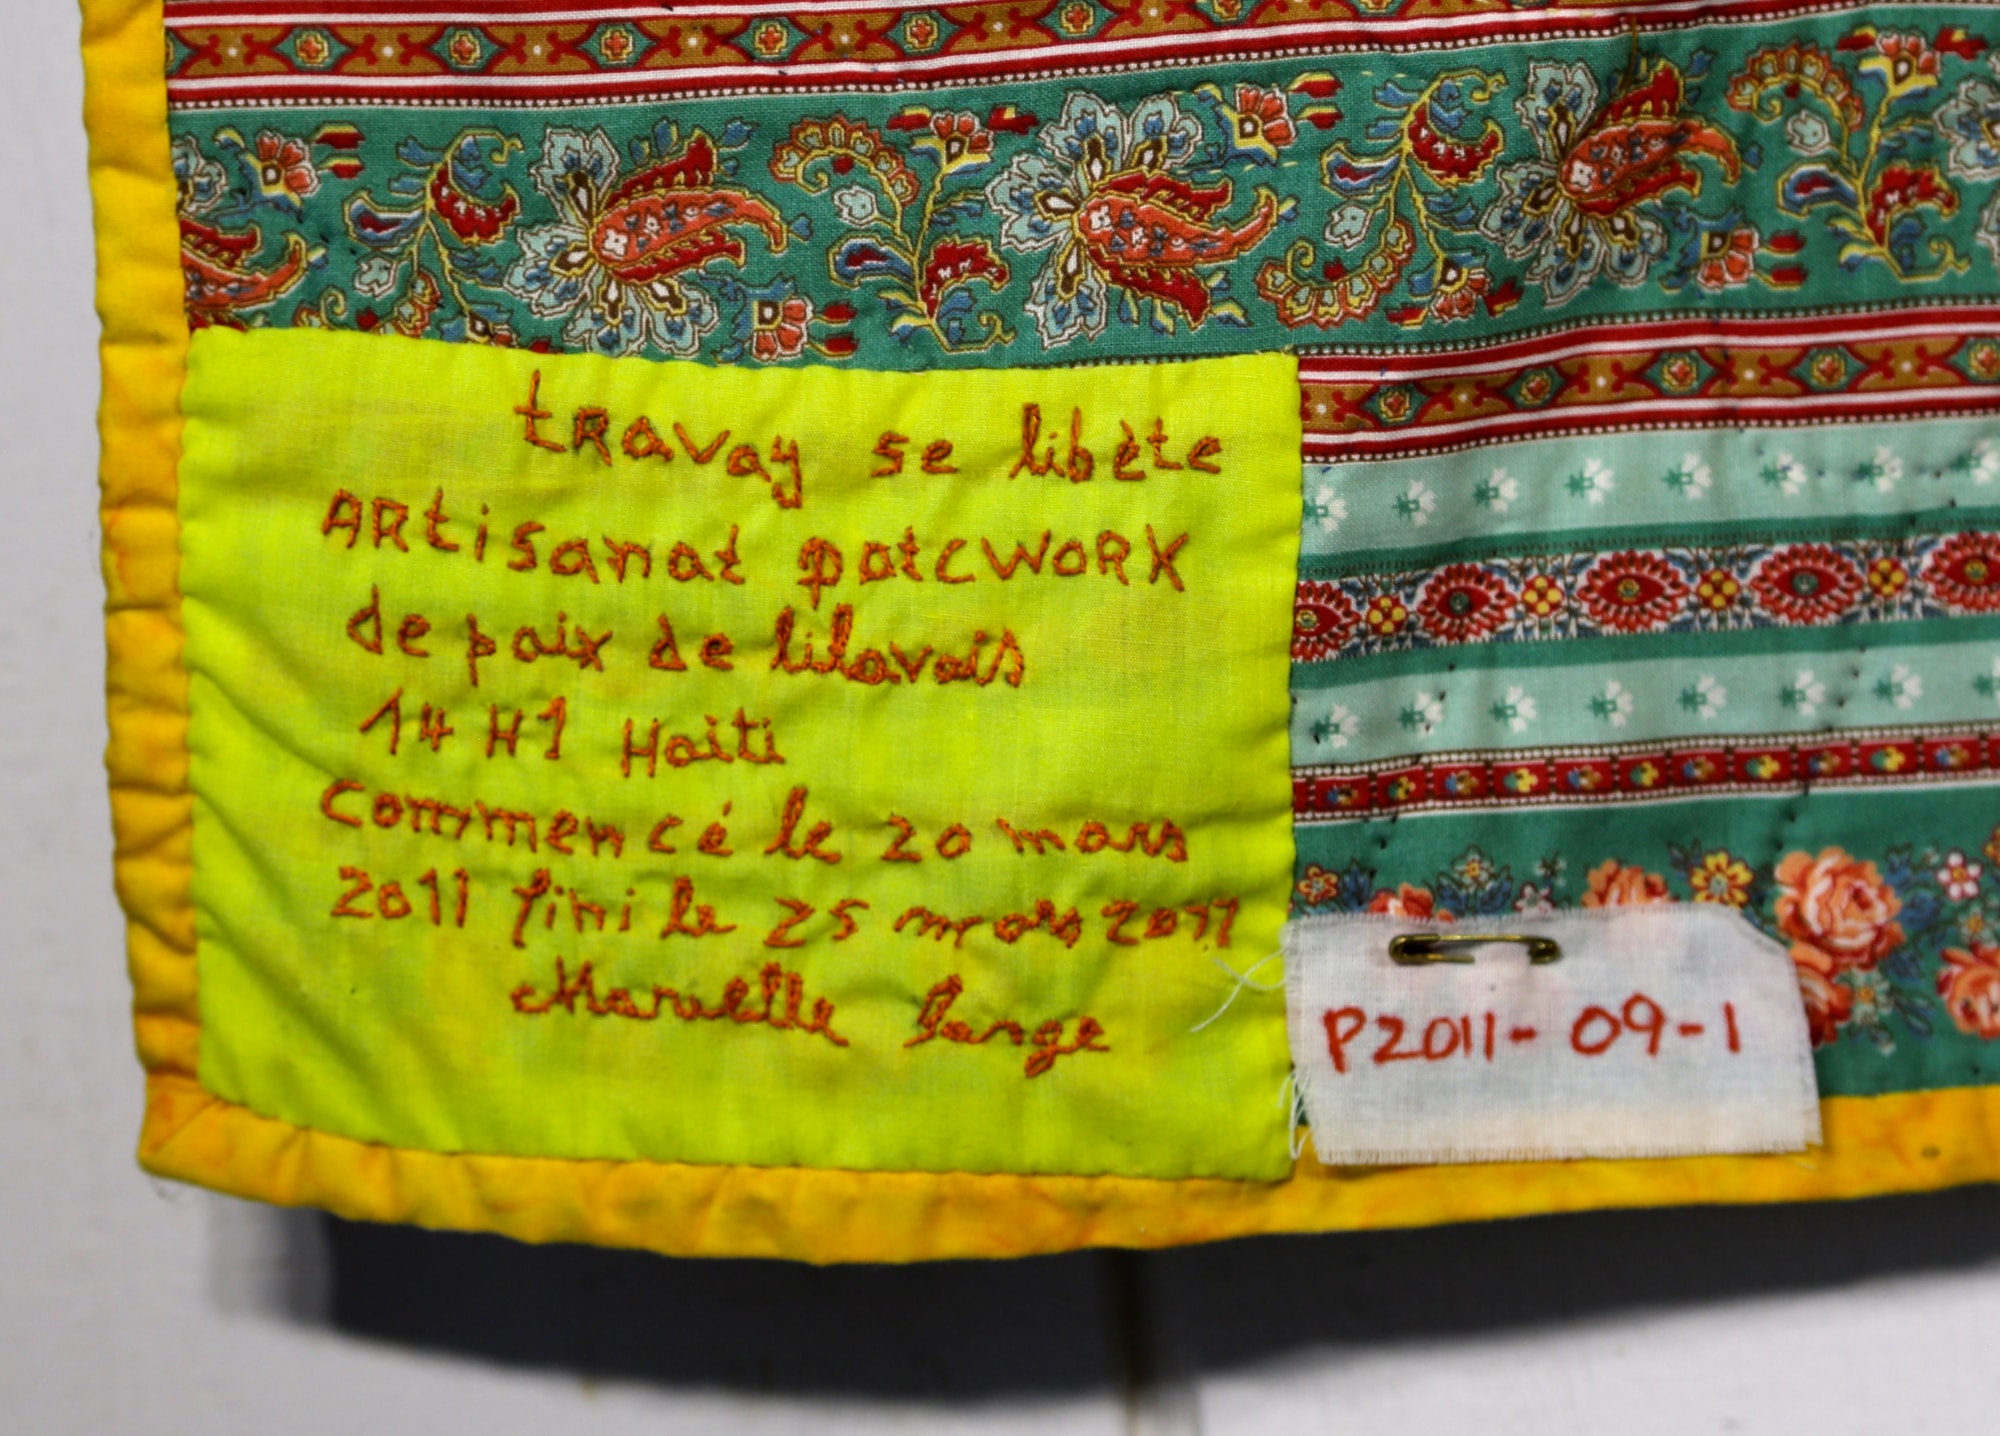 tRavay se libète
ARtisanat patcWORK
de paix de lilavois
14 H1 Haiti
Commencé le 20 mars
2011 fini le 25 mars 2011
Maruelle
P2011-09-1